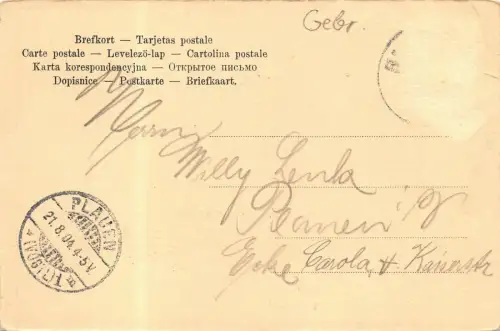 Gebr.
Brefkort — Tarjetas postale
Carte postale — Levelezö-lap — Cartolina postale
Karta korespondencyjna — Открытое письмо
Dopisnice — Postkarte — Briefkaart.
Herrn
Willy Lenk
Plauen i/V
Ecke Carola u. Kaiserstr
PLAUEN
21.8.04. 4-5 V.
* (VOGTL.) 1